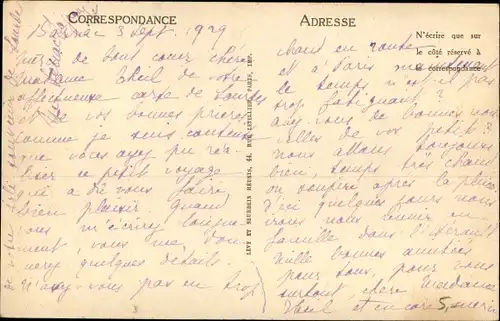 CORRESPONDANCE
ADRESSE
N'écrire que sur
le côté réservé à
la correspondance
LEVY ET NEURDEIN RÉUNIS, 44, RUE LETELLIER, PARIS, IMP.
3 Sept. 1929
Merci de tout cœur chère
Madame Theil de votre
affectueuse carte de Lourdes
et de vos bonnes prières
comme je suis contente
que vous ayez pu réa-
liser ce petit voyage
qui a dû vous faire
bien plaisir. Quand
vous m'écrirez longue-
ment, vous me don-
nerez quelques détails.
N'avez-vous pas eu trop
chaud en route
et à Paris maintenant
le temps n'est-il pas
trop fatiguant ?
avez-vous de bonnes nou-
velles de vos petits ?
nous allons toujours
bien, temps très chaud
on soupire après la pluie
D'ici quelques jours nous
irons nous réunir en
famille dans l'Hérault
Mille bonnes amitiés
pour tous, pour vous
surtout, chère Madame
Theil et encore merci
de votre souvenir de Lourdes